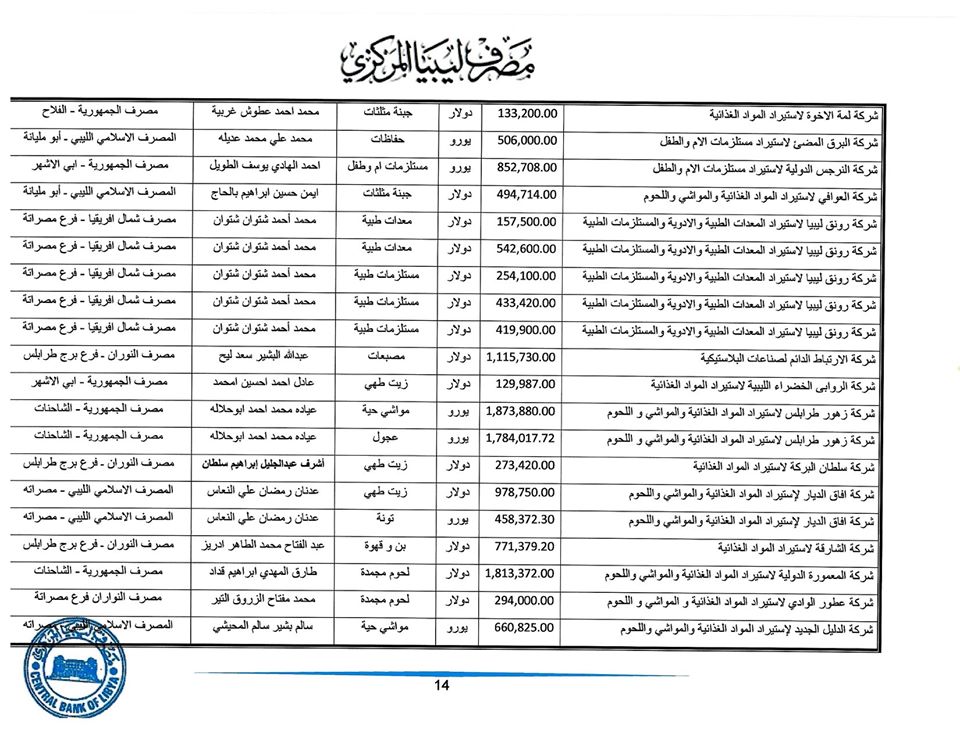 مصرف ليبيا المركزي
شركة لمة الاخوة لاستيراد المواد الغذائية 133,200.00 دولار جبنة مثلثات محمد احمد عطوش غربية مصرف الجمهورية - الفلاح
شركة البرق المضئ لاستيراد مستلزمات الام والطفل 506,000.00 يورو حفاظات محمد علي محمد عديله المصرف الاسلامي الليبي - أبو مليانة
شركة النرجس الدولية لاستيراد مستلزمات الام والطفل 852,708.00 يورو مستلزمات ام وطفل احمد الهادي يوسف الطويل مصرف الجمهورية - ابي الاشهر
شركة العوافي لاستيراد المواد الغذائية والمواشي واللحوم 494,714.00 دولار جبنة مثلثات ايمن حسين ابراهيم بالحاج المصرف الاسلامي الليبي - أبو مليانة
شركة رونق ليبيا لاستيراد المعدات الطبية والادوية والمستلزمات الطبية 157,500.00 دولار معدات طبية محمد أحمد شتوان شتوان مصرف شمال افريقيا - فرع مصراتة
شركة رونق ليبيا لاستيراد المعدات الطبية والادوية والمستلزمات الطبية 542,600.00 دولار معدات طبية محمد أحمد شتوان شتوان مصرف شمال افريقيا - فرع مصراتة
شركة رونق ليبيا لاستيراد المعدات الطبية والادوية والمستلزمات الطبية 254,100.00 دولار مستلزمات طبية محمد أحمد شتوان شتوان مصرف شمال افريقيا - فرع مصراتة
شركة رونق ليبيا لاستيراد المعدات الطبية والادوية والمستلزمات الطبية 433,420.00 دولار مستلزمات طبية محمد أحمد شتوان شتوان مصرف شمال افريقيا - فرع مصراتة
شركة رونق ليبيا لاستيراد المعدات الطبية والادوية والمستلزمات الطبية 419,900.00 دولار مستلزمات طبية محمد أحمد شتوان شتوان مصرف شمال افريقيا - فرع مصراتة
شركة الارتباط الدائم لصناعات البلاستيكية 1,115,730.00 دولار مصبعات عبدالله البشير سعد ليح مصرف النوران - فرع برج طرابلس
شركة الروابى الخضراء الليبية لاستيراد المواد الغذائية 129,987.00 دولار زيت طهي عادل احمد احسين امحمد مصرف الجمهورية - ابي الاشهر
شركة زهور طرابلس لاستيراد المواد الغذائية والمواشي و اللحوم 1,873,880.00 يورو مواشي حية عياده محمد احمد ابوحلاله مصرف الجمهورية - الشاحنات
شركة زهور طرابلس لاستيراد المواد الغذائية والمواشي و اللحوم 1,784,017.72 يورو عجول عياده محمد احمد ابوحلاله مصرف الجمهورية - الشاحنات
شركة سلطان البركة لاستيراد المواد الغذائية 273,420.00 دولار زيت طهي أشرف عبدالجليل إبراهيم سلطان مصرف النوران - فرع برج طرابلس
شركة افاق الديار لإستيراد المواد الغذائية والمواشي واللحوم 978,750.00 دولار زيت طهي عدنان رمضان علي النعاس المصرف الاسلامي الليبي - مصراته
شركة افاق الديار لإستيراد المواد الغذائية والمواشي واللحوم 458,372.30 يورو تونة عدنان رمضان علي النعاس المصرف الاسلامي الليبي - مصراته
شركة الشارقة لاستيراد المواد الغذائية 771,379.20 دولار بن و قهوة عبد الفتاح محمد الطاهر ادريز مصرف النوران - فرع برج طرابلس
شركة المعمورة الدولية لاستيراد المواد الغذائية والمواشي واللحوم 1,813,372.00 دولار لحوم مجمدة طارق المهدي ابراهيم قداد مصرف الجمهورية - الشاحنات
شركة عطور الوادي لاستيراد المواد الغذائية و المواشي و اللحوم 294,000.00 دولار لحوم مجمدة محمد مفتاح الزروق التير مصرف النواران فرع مصراتة
شركة الدليل الجديد لإستيراد المواد الغذائية والمواشي واللحوم 660,825.00 يورو مواشي حية سالم بشير سالم المحيشي المصرف الاسلامي الليبي - مصراته
14
مصرف ليبيا المركزي
CENTRAL BANK OF LIBYA